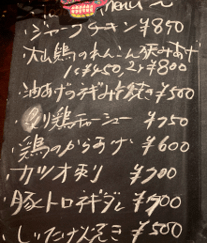 ・ジャークチキン ¥850
・大山鶏のれんこん挟みあげ
1ヶ¥450, 2ヶ¥800
・油あげのネギみそ焼き ¥500
鶏チャーシュー ¥750
・鶏のからあげ ¥600
・カツオ刺 ¥700
・豚トロネギダレ
・しいたけ焼き ¥500